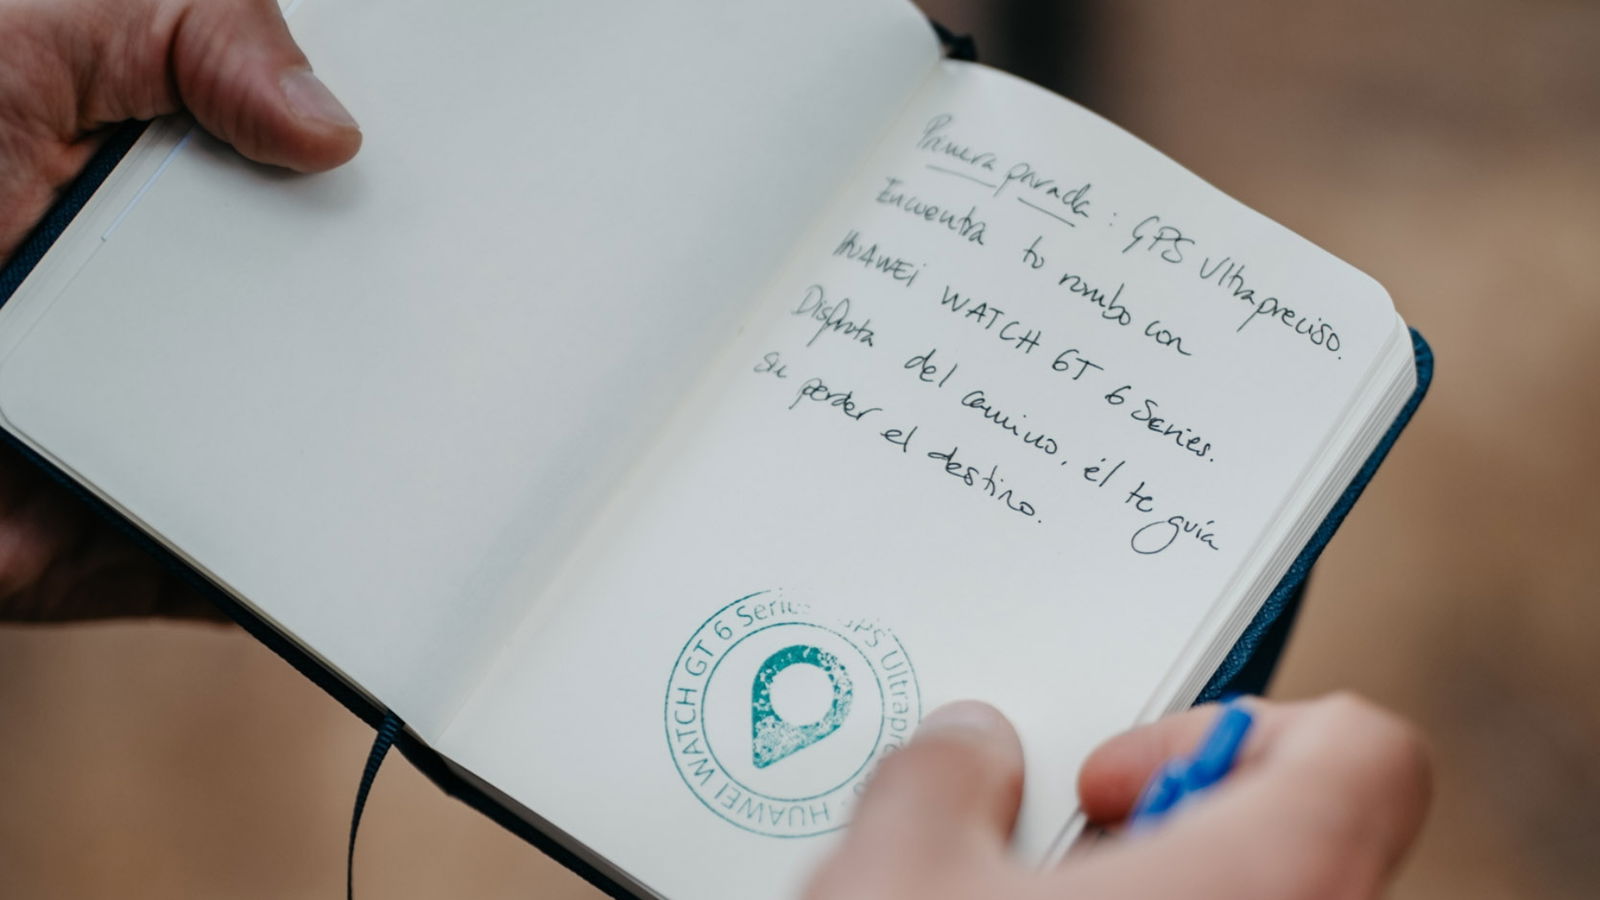 Primera parada: GPS Ultrapreciso.
Encuentra tu rumbo con
HUAWEI WATCH GT 6 Series.
Disfruta del camino, él te guía
sin perder el destino.
HUAWEI WATCH GT 6 Series
GPS Ultrapre